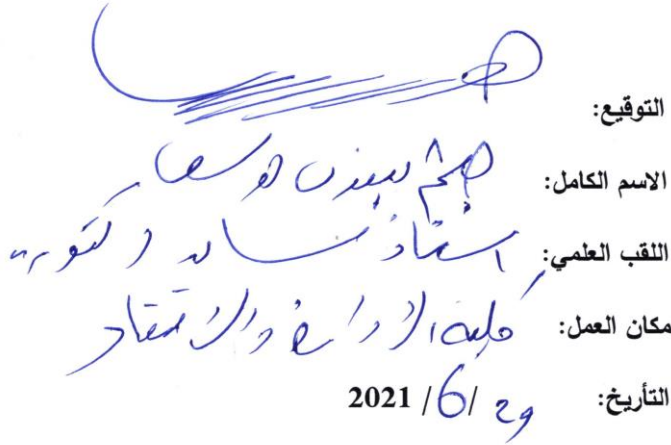 التوقيع:
الاسم الكامل:
اللقب العلمي: استاذ مساعد دكتور
مكان العمل: كلية الادارة والاقتصاد
التأريخ: 29 /6/ 2021